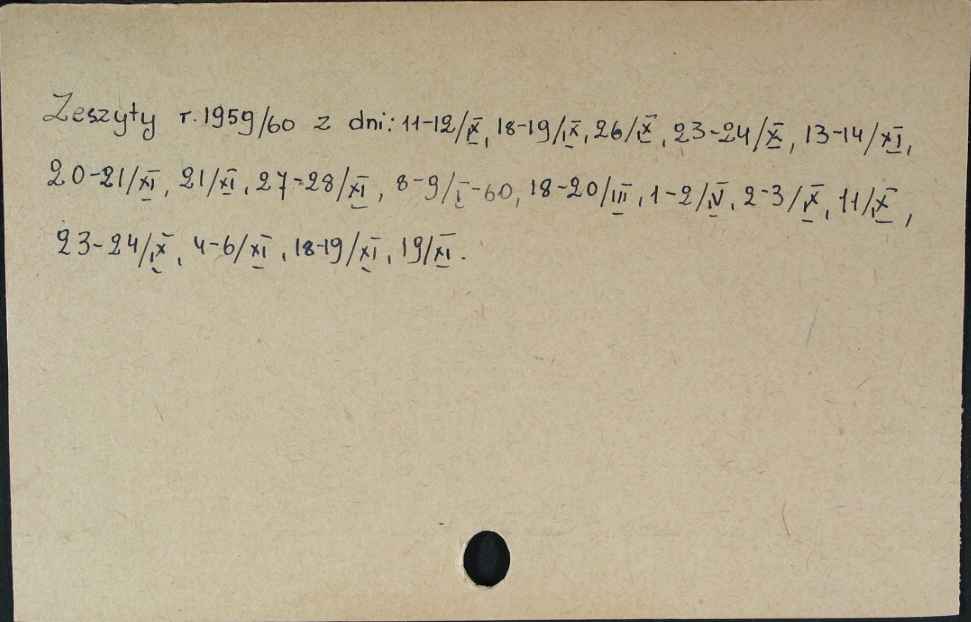 Zeszyty r. 1959/60 z dni: 11-12/IX, 18-19/IX, 26/IX, 23-24/X, 13-14/XI,
20-21/XI, 21/XI, 27-28/XI, 8-9/I-60, 18-20/III, 1-2/IV, 2-3/IX, 11/IX,
23-24/IX, 4-6/XI, 18-19/XI, 19/XI.